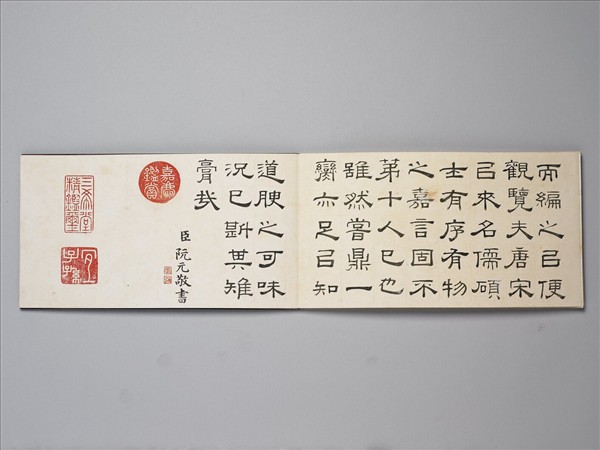 而編之㠯便
觀覽夫唐宋
㠯來名儒碩
士有序有物
之嘉言固不
第十人已也
雖然嘗鼎一
臠亦足㠯知
道腴之可味
況已斟其雉
膏哉
臣阮元敬書
嘉慶鑑賞
三希堂精鑑璽
宜子孫